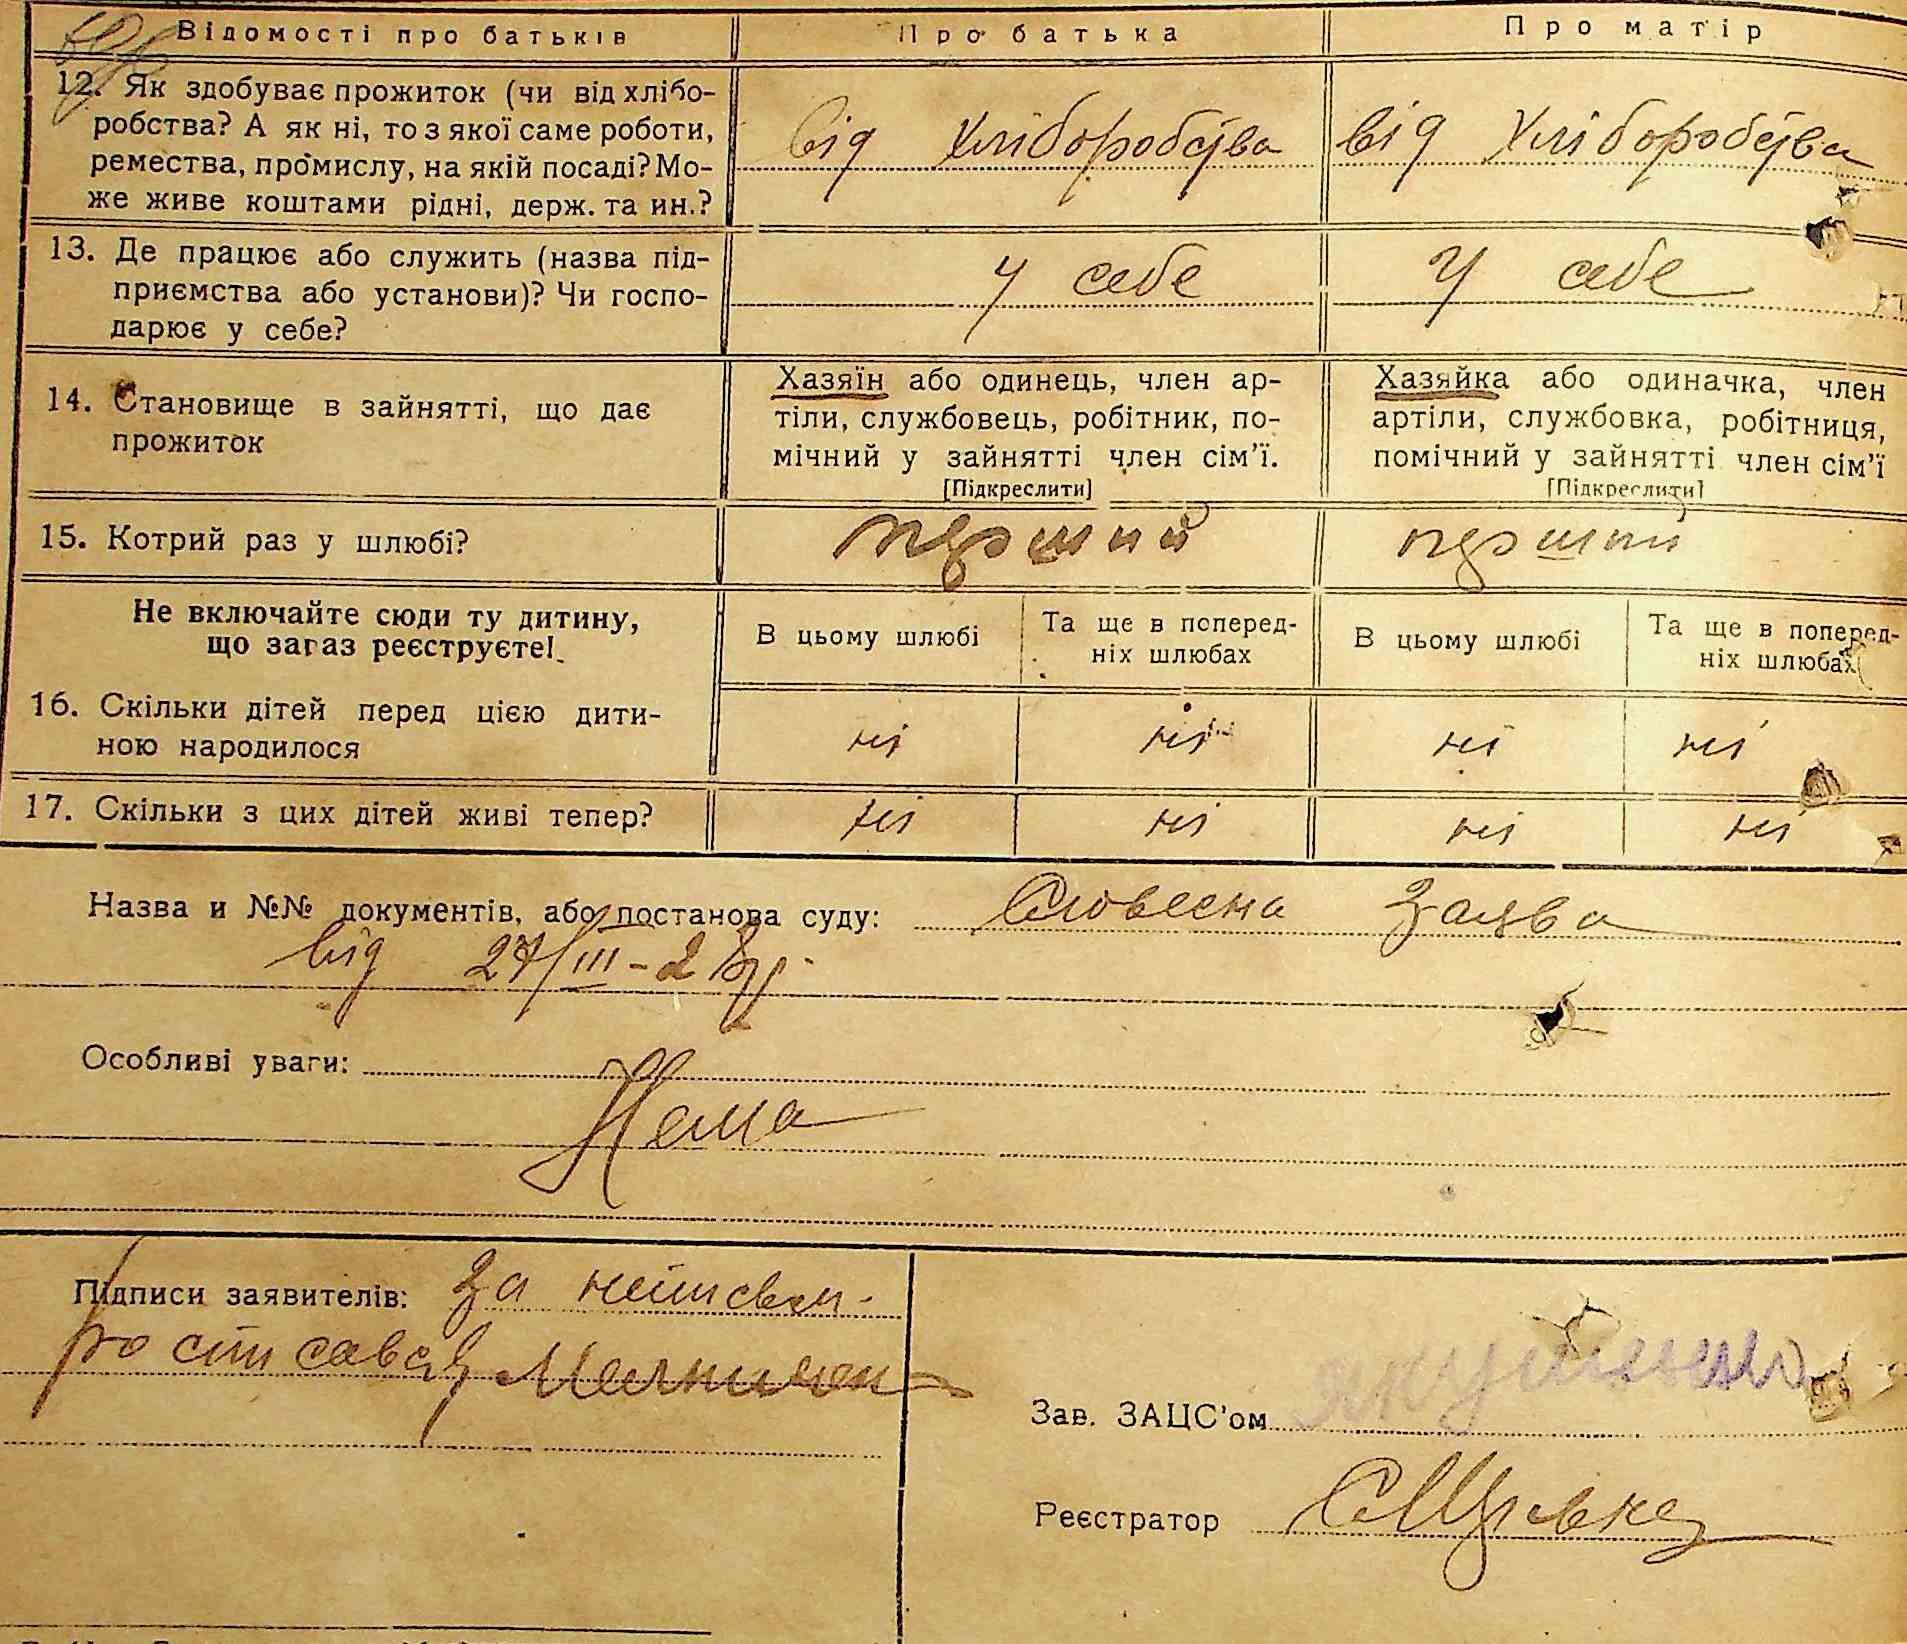 Відомості про батьків Про батька Про матір
12. Як здобуває прожиток (чи від хлібо-
робства? А як ні, то з якої саме роботи,
ремества, промислу, на якій посаді? Мо-
же живе коштами рідні, держ. та ин.?
від хліборобства від хліборобства
13. Де працює або служить (назва під-
приємства або установи)? Чи госпо-
дарює у себе?
у себе У себе
14. Становище в зайнятті, що дає
прожиток
Хазяїн або одинець, член ар-
тіли, службовець, робітник, по-
мічний у зайнятті член сім'ї.
[Підкреслити]
Хазяйка або одиначка, член
артіли, службовка, робітниця,
помічний у зайнятті член сім'ї
[Підкреслити]
15. Котрий раз у шлюбі? перший перший
Не включайте сюди ту дитину,
що зараз реєструєте!
В цьому шлюбі
Та ще в поперед-
ніх шлюбах
В цьому шлюбі
Та ще в поперед-
ніх шлюбах
16. Скільки дітей перед цією дити-
ною народилося
ні ні ні ні
17. Скільки з цих дітей живі тепер? ні ні ні ні
Назва и №№ документів, або постанова суду: Словесна заява
від 27/III-28р.
Особливі уваги:
Нема
Підписи заявителів: За неписьм.
росписався
Зав. ЗАЦС'ом
Реєстратор